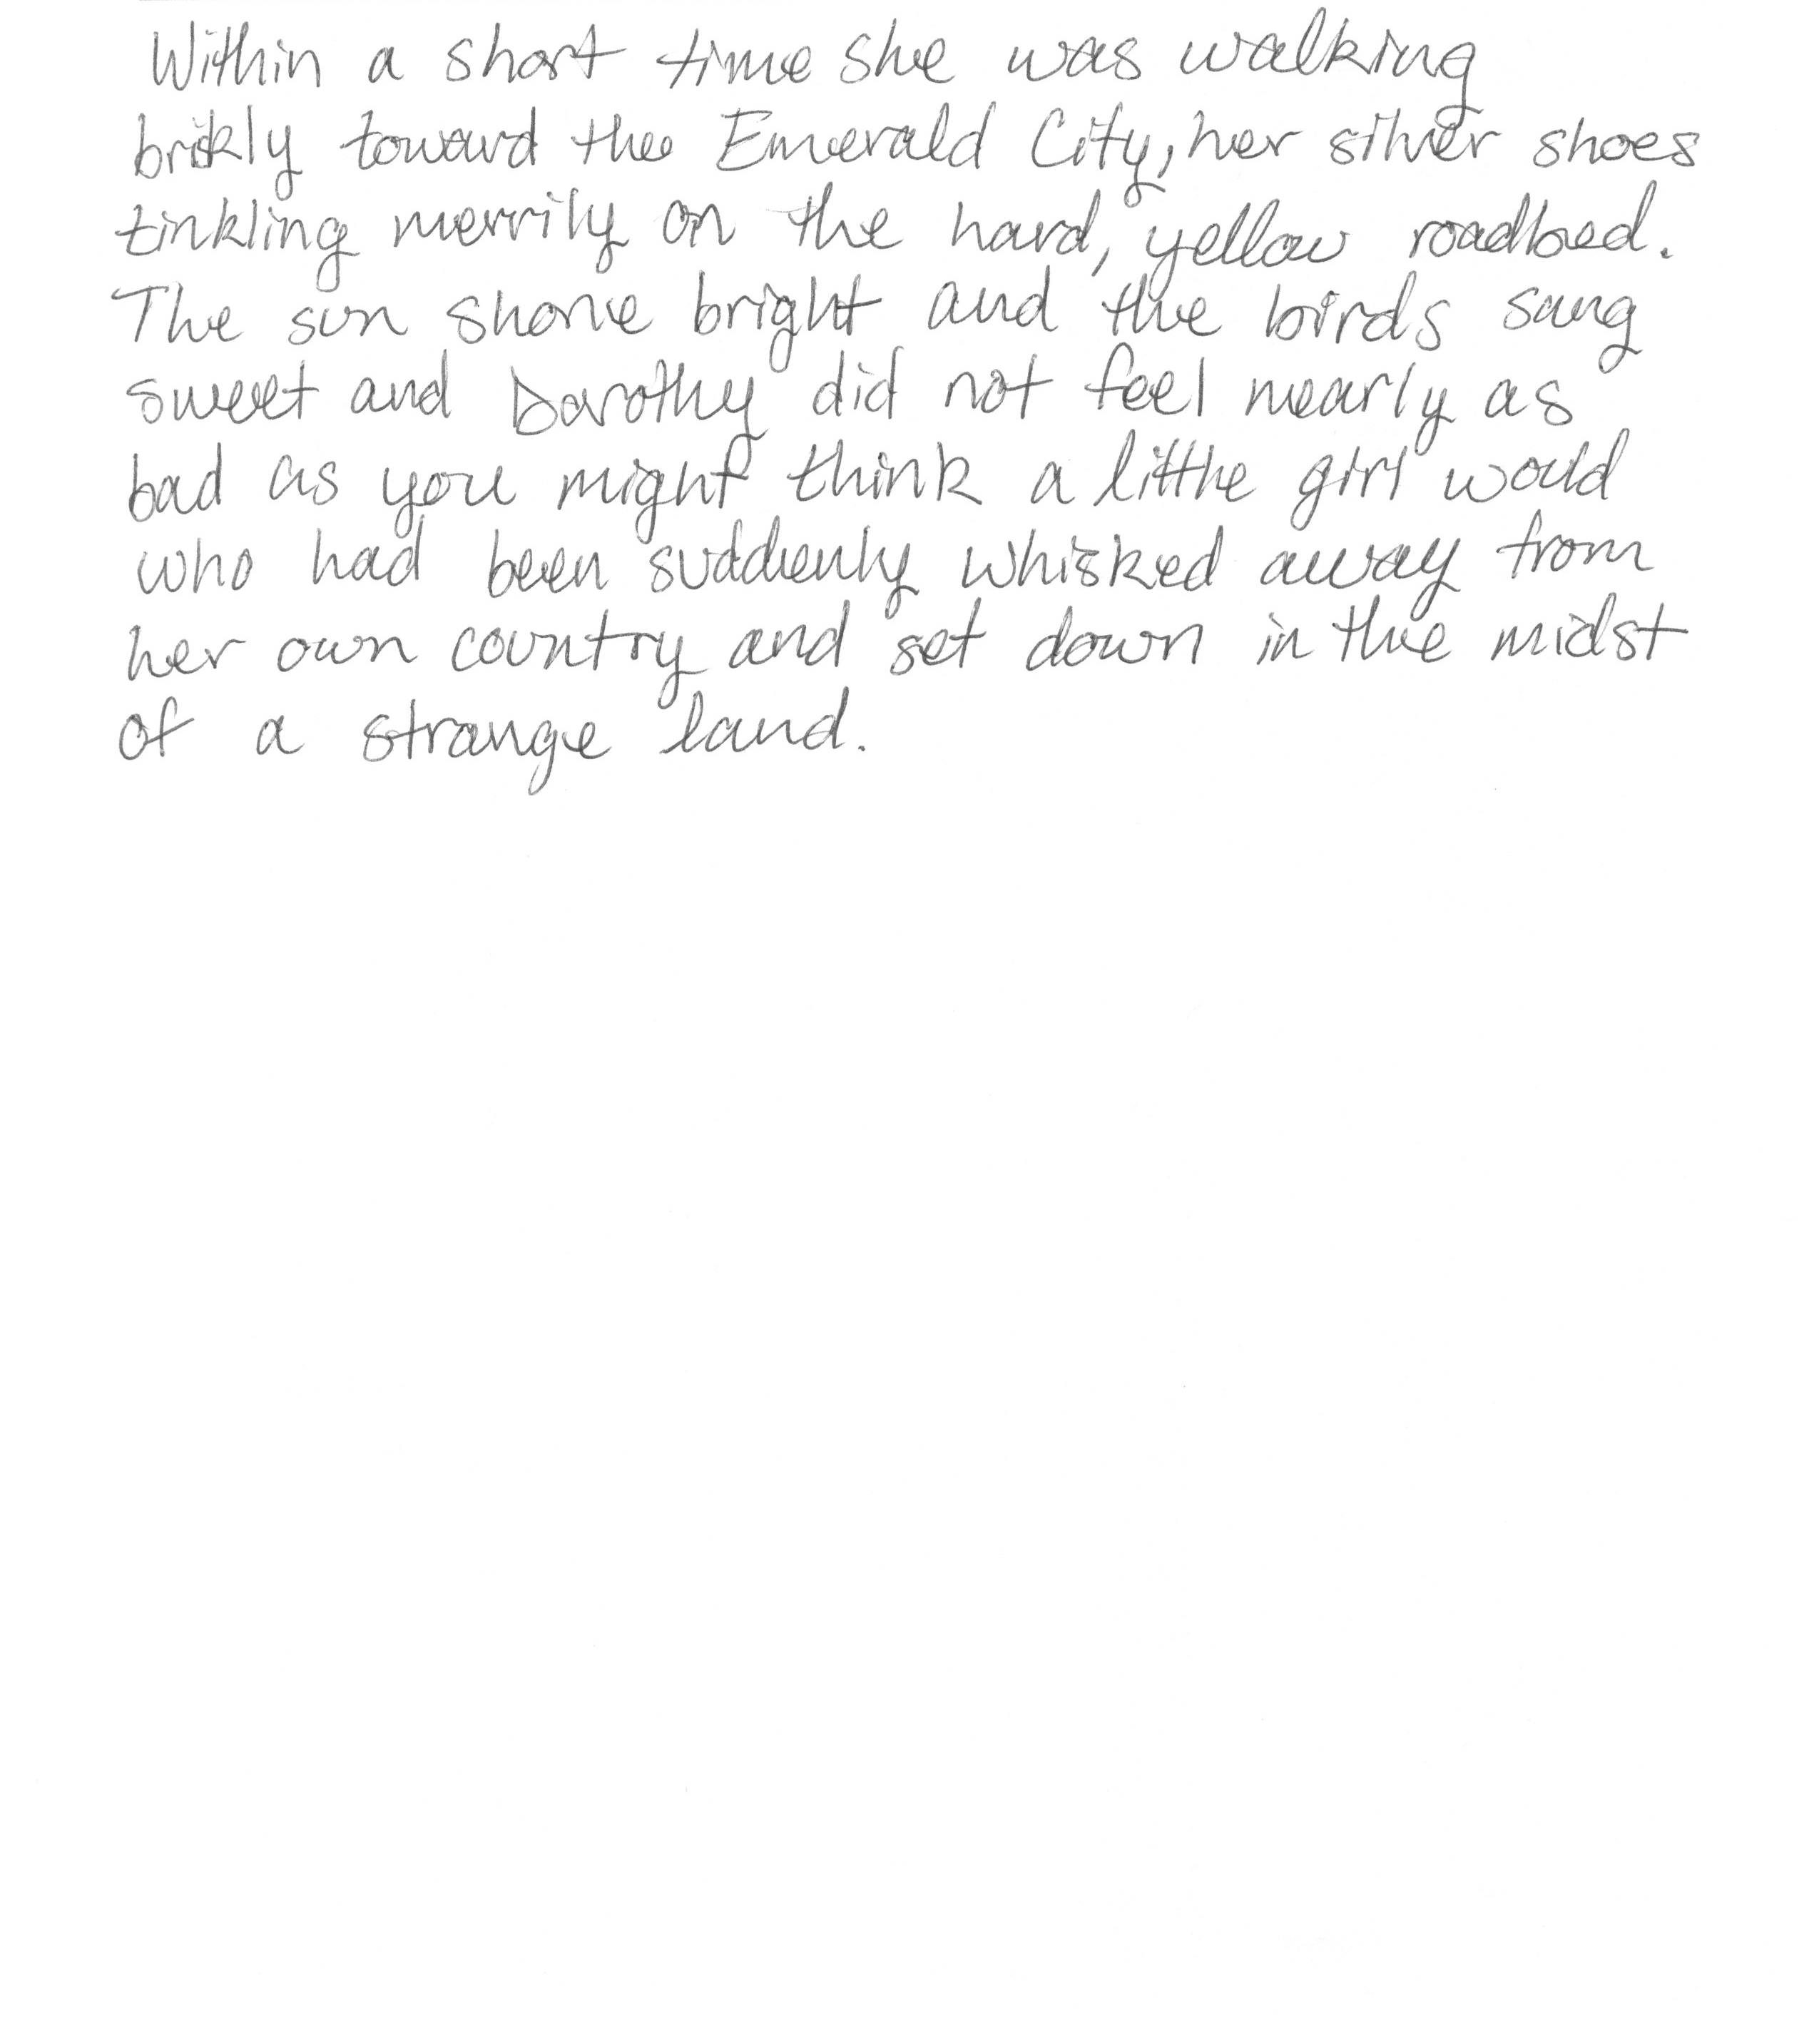 Within a short time she was walking
brikly toward the Emerald City, her silver shoes
tinkling merrily on the hard, yellow roadbed.
The sun shone bright and the birds sang
sweet and Dorothy did not feel nearly as
bad as you might think a little girl would
who had been suddenly whisked away from
her own country and set down in the midst
of a strange land.